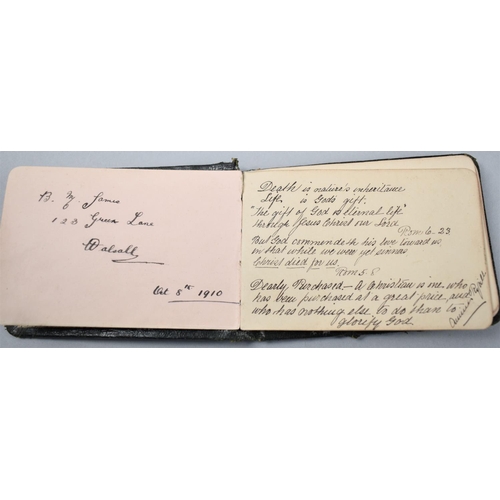 B. M. James
123 Green Lane
Walsall
Oct 8th 1910
Death is nature's inheritance
Life is Gods gift.
"The gift of God is eternal life"
through Jesus Christ our Lord
Rom 6. 23
But God commendeth his love toward us
in that while we were yet sinners
Christ died for us.
Rom 5. 8
Dearly Purchased - A Christian is one who
has been purchased at a great price, and
who has nothing else to do than to
glorify God